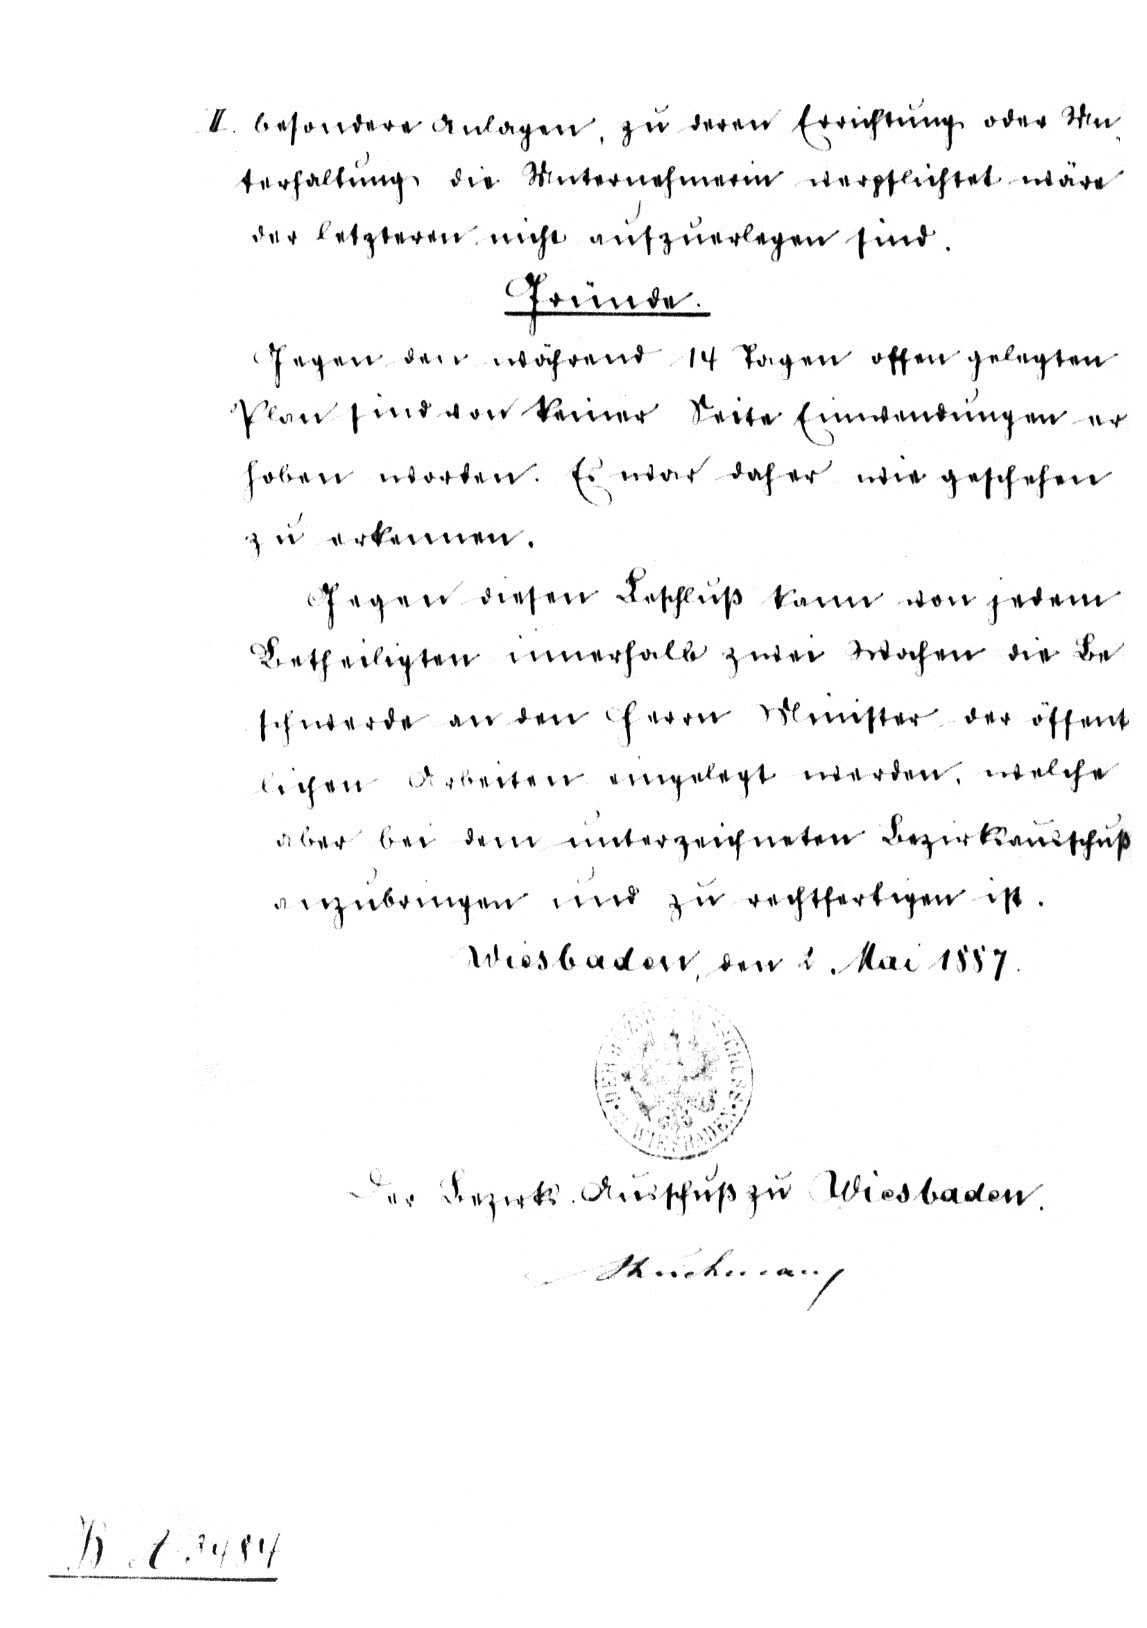 II. besondere Anlagen, zu deren Errichtung oder Un
terhaltung die Unternehmerin verpflichtet wäre
der letzteren nicht aufzuerlegen sind.
Gründe.
Gegen den während 14 Tagen offen gelegten
Plan sind von keiner Seite Einwendungen er
hoben worden. Es war daher wie geschehen
zu erkennen.
Gegen diesen Beschluß kann von jedem
Betheiligten innerhalb zwei Wochen die Be
schwerde an den Herrn Minister der öffent
lichen Arbeiten eingelegt werden, welche
aber bei dem unterzeichneten Bezirksausschuß
anzubringen und zu rechtfertigen ist.
Wiesbaden, den 2. Mai 1887.
WIESBADEN
Der Bezirks-Ausschuß zu Wiesbaden.
B A 3484